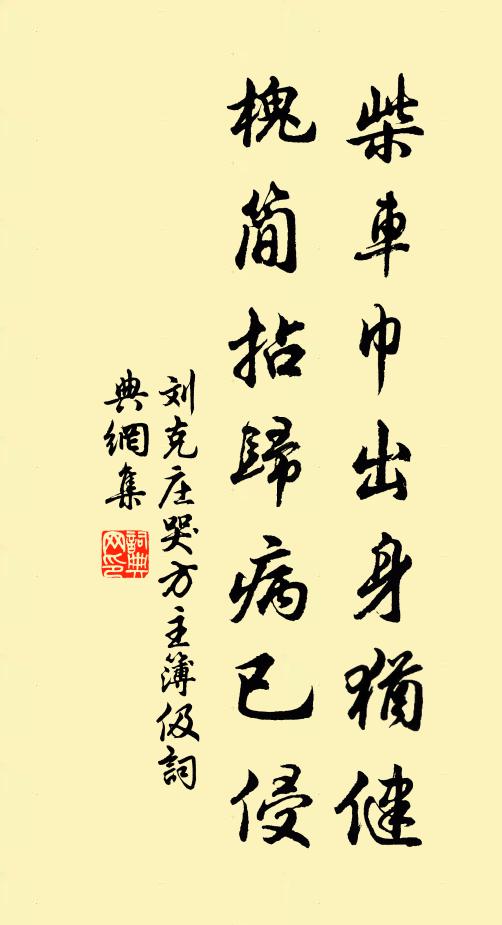 柴車巾出身猶健
槐簡拈歸病已侵
刘克庄哭方主簿伋詞
典網集
詞典網印